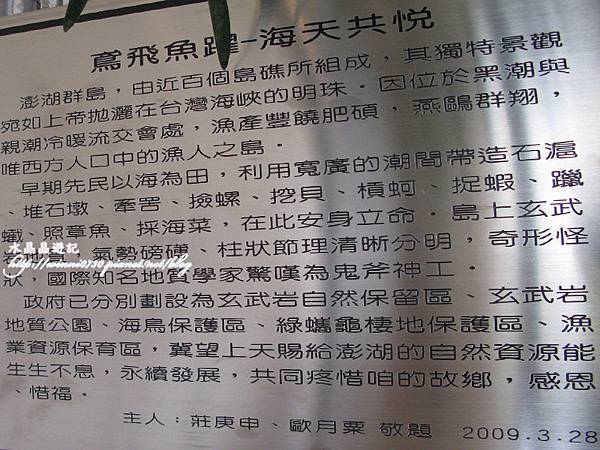 鳶飛魚躍-海天共悦
澎湖群島，由近百個島礁所組成，其獨特景觀
宛如上帝拋灑在台灣海峽的明珠．因位於黑潮與
親潮冷暖流交會處，漁產豐饒肥碩，燕鷗群翔，
唯西方人口中的漁人之島．
早期先民以海為田，利用寬廣的潮間帶造石滬
、堆石墩、牽罟、撿螺、挖貝、槓蚵、捉蝦、躐
蟻、照章魚、採海菜，在此安身立命．島上玄武
氣勢磅礡、柱狀節理清晰分明，奇形怪
狀，國際知名地質學家驚嘆為鬼斧神工．
政府已分別劃設為玄武岩自然保留區、玄武岩
地質公園、海鳥保護區、綠蠵龜棲地保護區、漁
業資源保育區，冀望上天賜給澎湖的自然資源能
生生不息，永續發展，共同疼惜咱的故鄉，感恩
、惜福．
主人：莊庚申、歐月粟 敬題 2009.3.28
水晶晶遊記